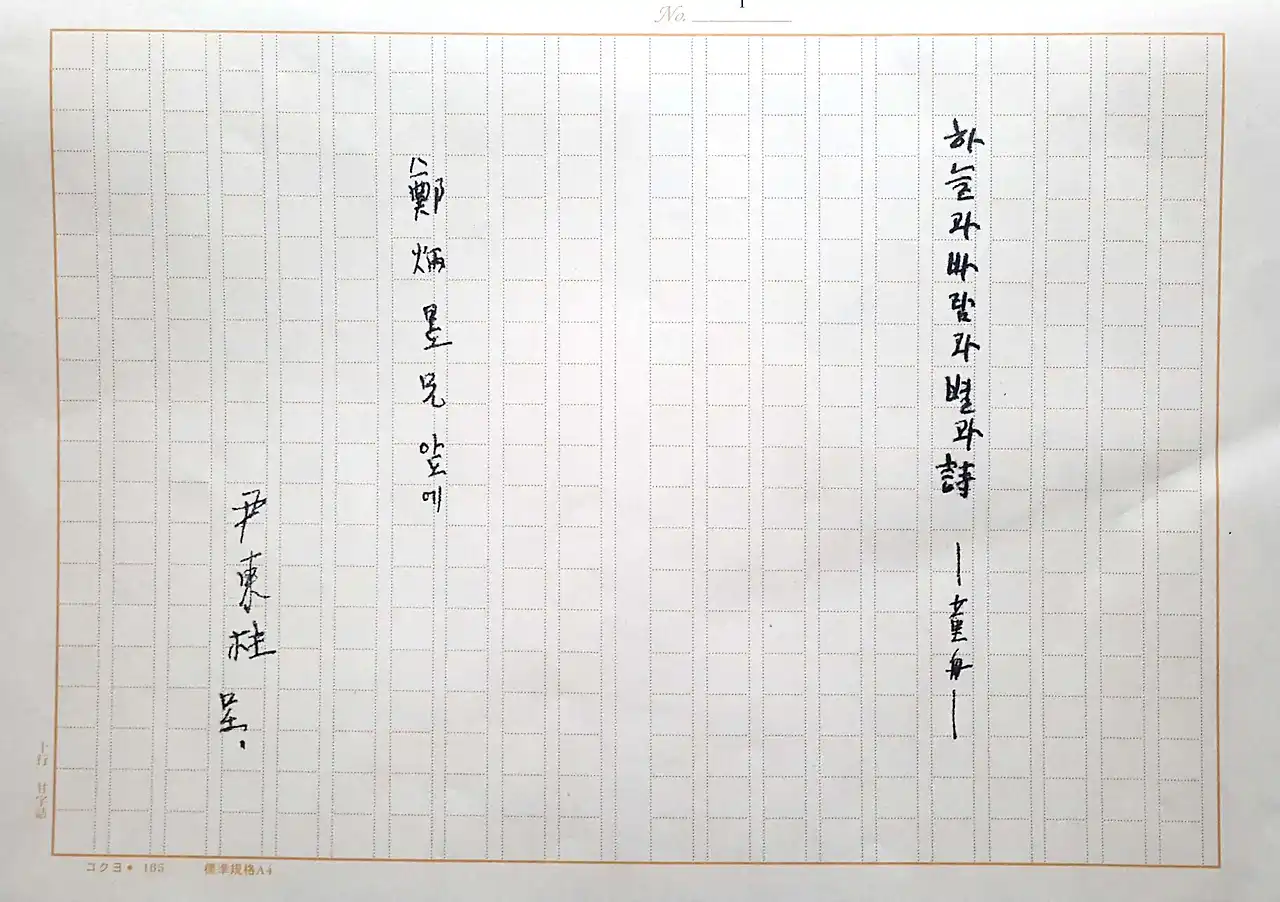 No. 1
하늘과바람과별과詩 ―童舟―
鄭炳昱兄앞에
尹東柱呈.
十行 廿字詰
コクヨ● 165 標準規格A4